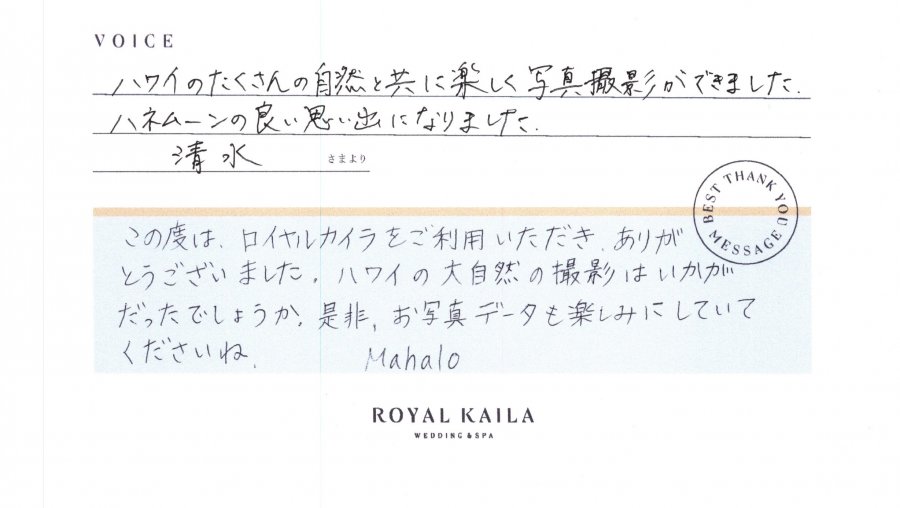 VOICE
ハワイのたくさんの自然と共に楽しく写真撮影ができました.
ハネムーンの良い思い出になりました.
清水 さまより
BEST THANK YOU MESSAGE
この度は、ロイヤルカイラをご利用いただき、ありが
とうございました。ハワイの大自然の撮影はいかが
だったでしょうか。是非、お写真データも楽しみにしていて
くださいね。 Mahalo
ROYAL KAILA
WEDDING & SPA